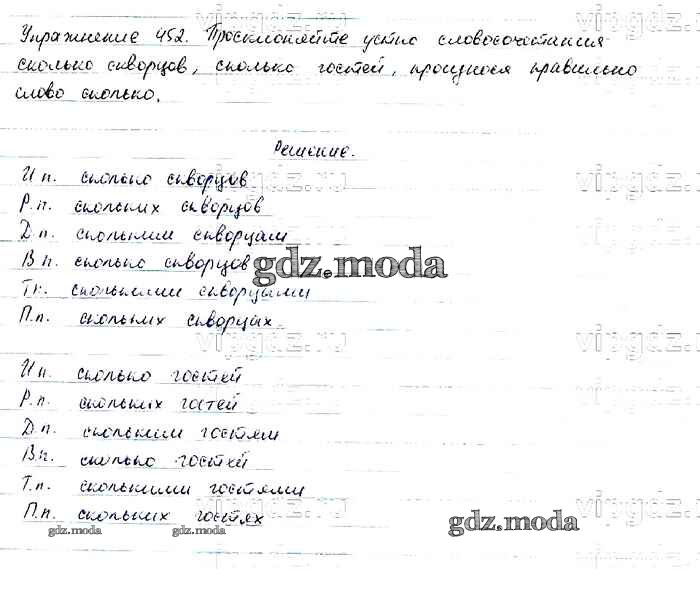 Упражнение 452. Просклоняйте устно словосочетания
сколько скворцов, сколько гостей, произнося правильно
слово сколько.
Решение.
И.п. сколько скворцов
Р.п. скольких скворцов
Д.п. скольким скворцам
В.п. сколько скворцов
Т.п. сколькими скворцами
П.п. скольких скворцах
И.п. сколько гостей
Р.п. скольких гостей
Д.п. скольким гостям
В.п. сколько гостей
Т.п. сколькими гостями
П.п. скольких гостях
vipgdz.ru
gdz.moda
vipgdz.ru
vipgdz.ru
gdz.moda
gdz.moda
gdz.moda